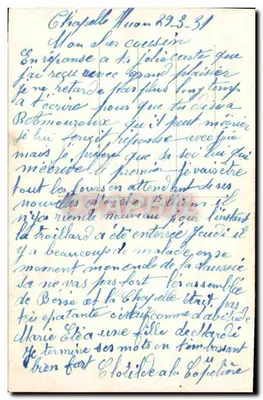 Chapelle Huon 29.3.31
Mon cher cousin
En réponse a ta jolie carte que
j'ai reçu avec grand plaisir
je ne retarde pas plus longtemp
a t'écrire pour que tu dise a
qu'il peut
si lui serait réponse avec joie
mais je préfère que se soi lui qui
m'écrive le premier je vais être
tout les jours en attendant de ses
nouvelles
n'y a rien de nouveau pour l'instant
la troillard a été enterrée Jeudi il
y a beaucoup de malade en se
moment mon oncle de la
sa ne vas pas fort l'assemblée
de Besse et la Chapelle était pas
très épatante comme d'abitude
Marie a une fille de Mardi
Je termine ses mots en t'embrassant
bien fort Clotilde a la